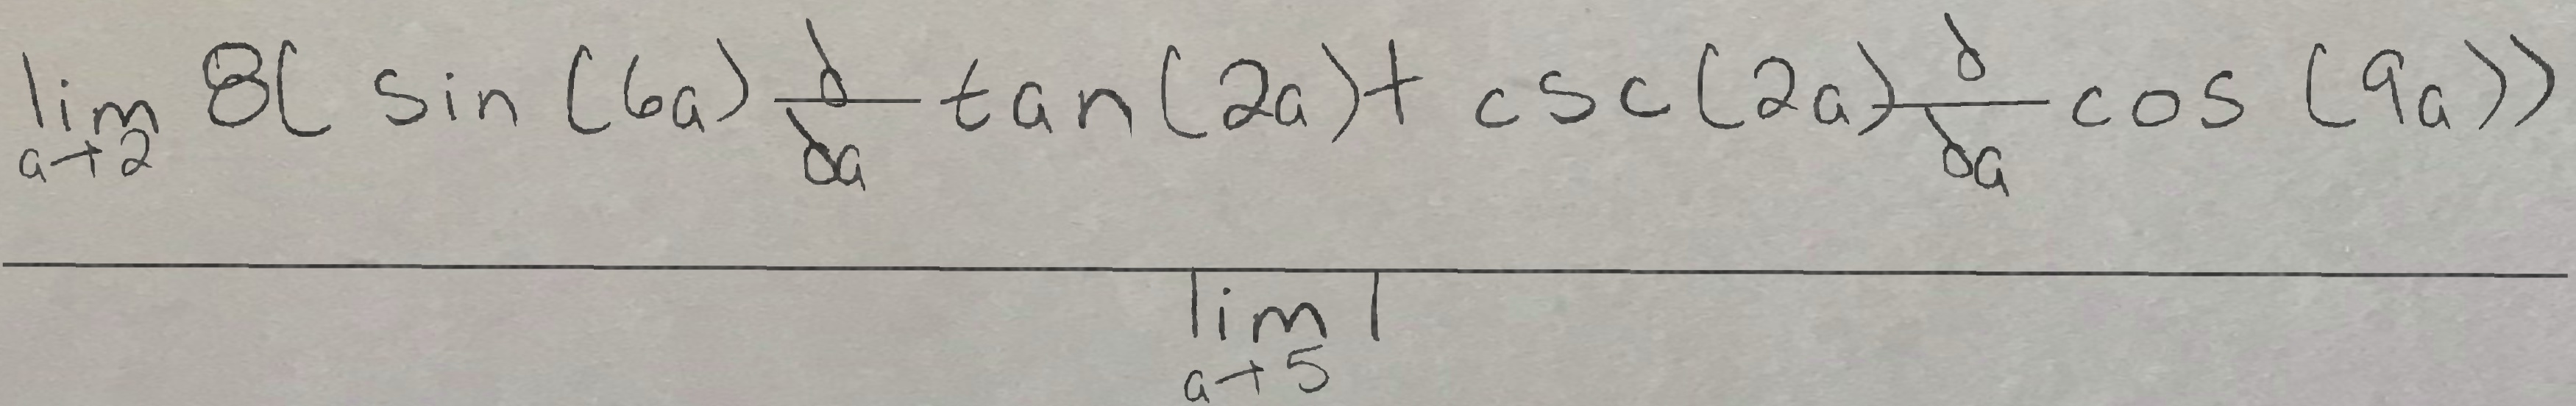 \frac{\lim_{a \to 2} 8(\sin(6a) \frac{d}{da} \tan(2a) + \csc(2a) \frac{d}{da} \cos(9a))}{\lim_{a \to 5} 1}